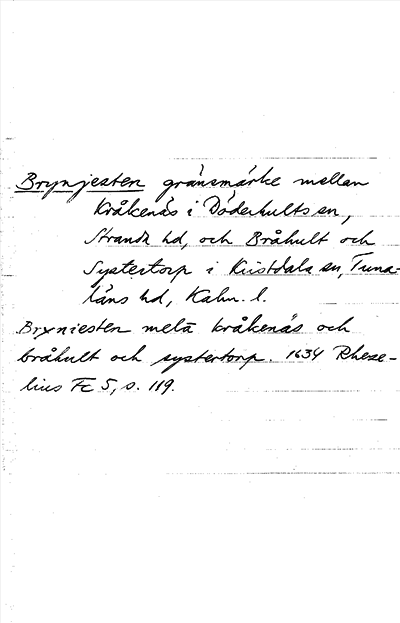 Brynjesten gränsmärke mellan
Kråkenäs i Döderhults sn,
Stranda hd, och Bråhult och
Systertorp i Kristdala sn, Tuna-
läns hd, Kalm. l.
Bryniesten melā kråkenäs och
bråhult och systertorp. 1634 Rheze-
lius Fc 5, s. 119.